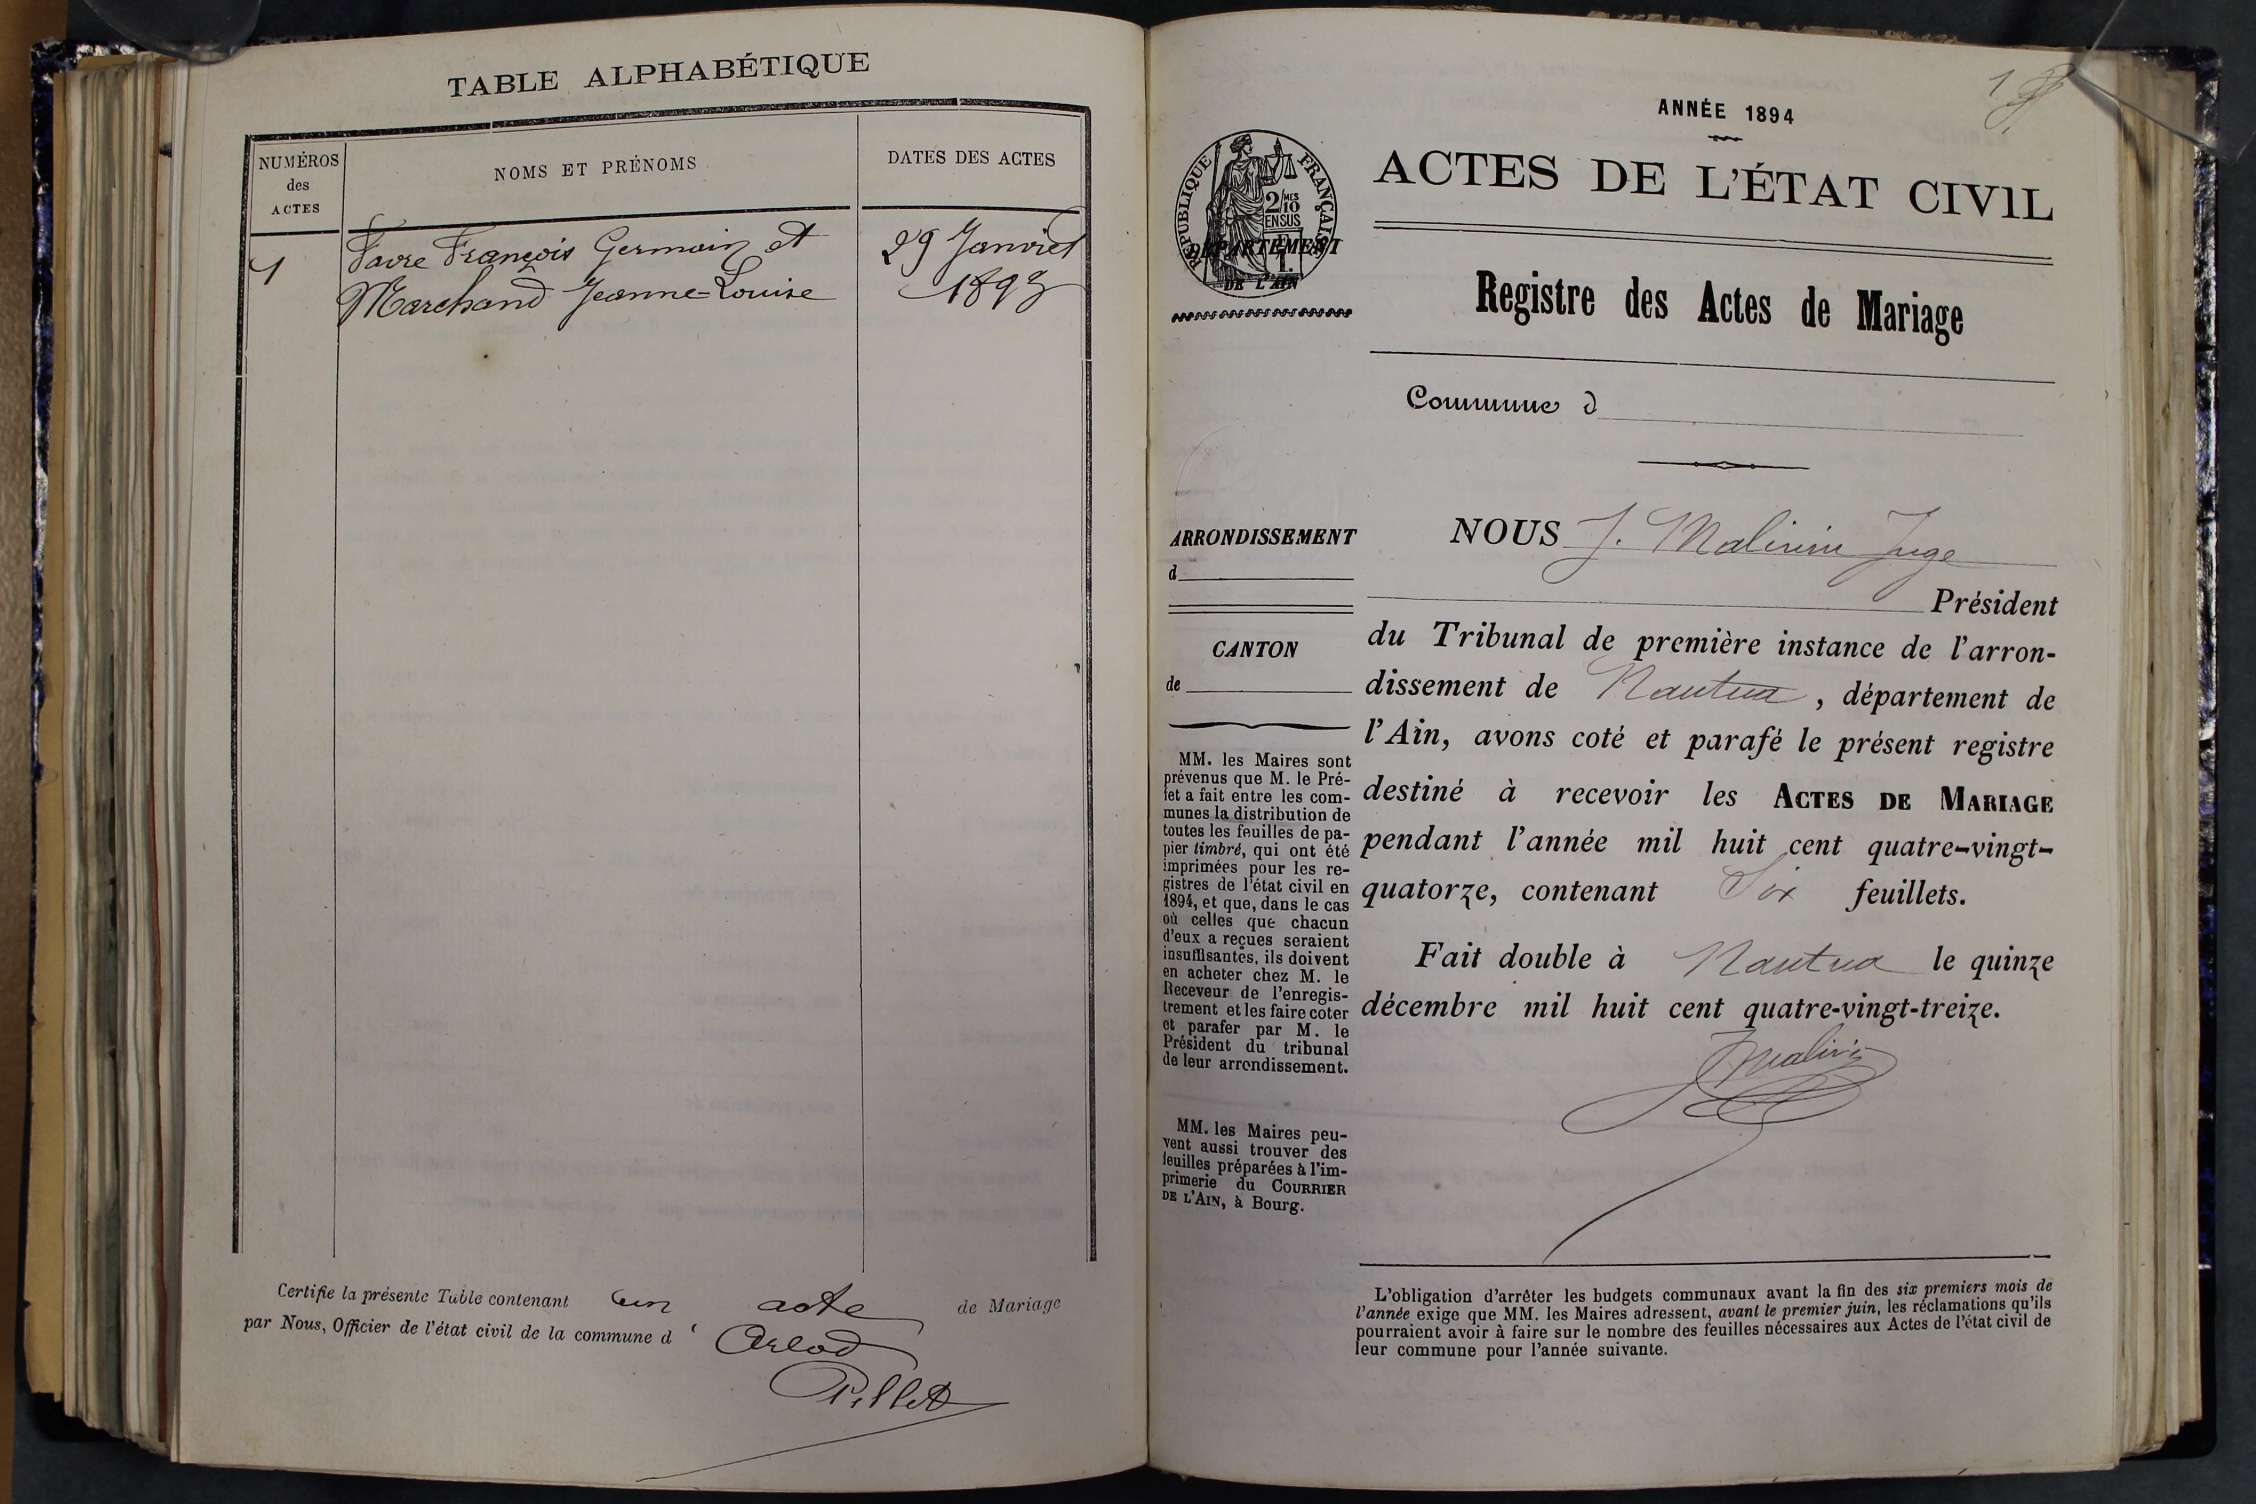 TABLE ALPHABÉTIQUE
NUMÉROS
des
ACTES
NOMS ET PRÉNOMS
DATES DES ACTES
1
Favre François Germain et
29 Janvier
Marchand Jeanne-Louise
1893
Certifie la présente Table contenant un acte de Mariage
par Nous, Officier de l'état civil de la commune d'Arlod
Pillet
1
ANNÉE 1894
ACTES DE L'ÉTAT CIVIL
RÉPUBLIQUE FRANÇAISE
2/10
MES
EN SUS
DÉPARTEMENT
DE L'AIN
Registre des Actes de Mariage
Commune d
ARRONDISSEMENT
d
CANTON
de
MM. les Maires sont
prévenus que M. le Pré-
fet a fait entre les com-
munes la distribution de
toutes les feuilles de pa-
pier timbré, qui ont été
imprimées pour les re-
gistres de l'état civil en
1894, et que, dans le cas
où celles que chacun
d'eux a reçues seraient
insuffisantes, ils doivent
en acheter chez M. le
Receveur de l'enregis-
trement et les faire coter
et parafer par M. le
Président du tribunal
de leur arrondissement.
MM. les Maires peu-
vent aussi trouver des
feuilles préparées à l'im-
primerie du COURRIER
DE L'AIN, à Bourg.
NOUS J. Juge
Président
du Tribunal de première instance de l'arron-
dissement de Nantua, département de
l'Ain, avons coté et parafé le présent registre
destiné à recevoir les ACTES DE MARIAGE
pendant l'année mil huit cent quatre-vingt-
quatorze, contenant Six feuillets.
Fait double à Nantua le quinze
décembre mil huit cent quatre-vingt-treize.
L'obligation d'arrêter les budgets communaux avant la fin des six premiers mois de
l'année exige que MM. les Maires adressent, avant le premier juin, les réclamations qu'ils
pourraient avoir à faire sur le nombre des feuilles nécessaires aux Actes de l'état civil de
leur commune pour l'année suivante.